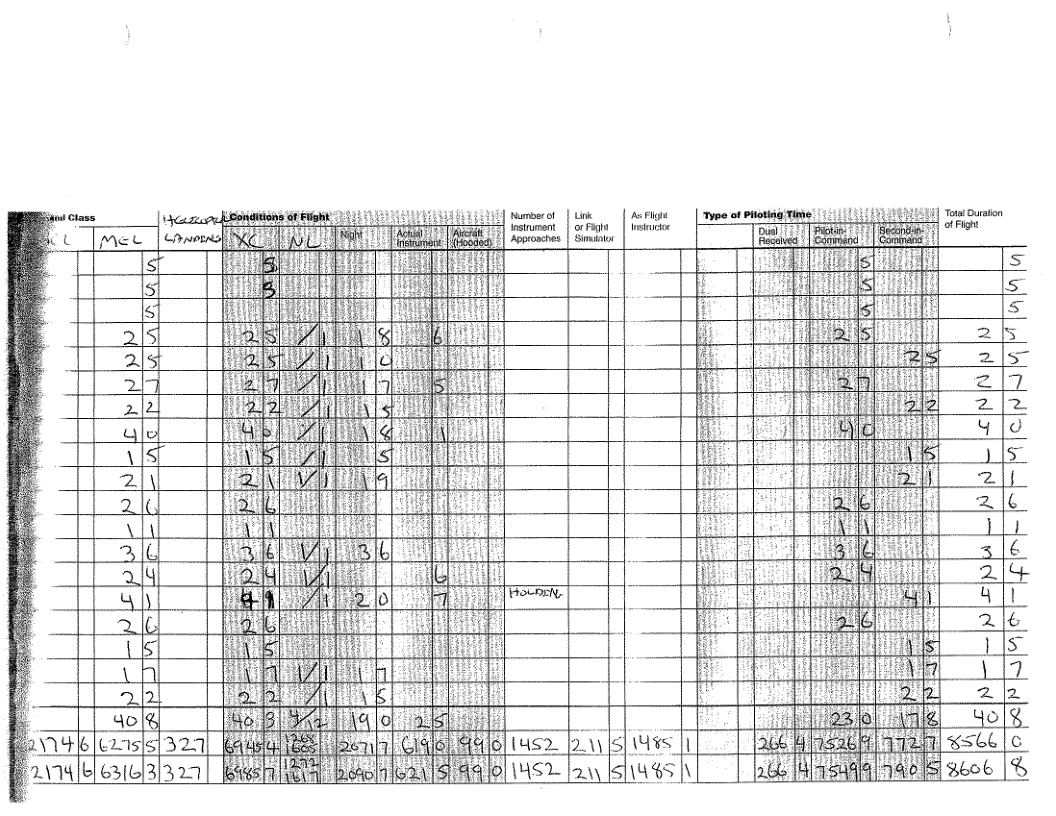 and Class HELICOPTER Conditions of Flight Number of Instrument Approaches Link or Flight Simulator As Flight Instructor Type of Piloting Time Total Duration of Flight
CL MEL LANDINGS XC NL Night Actual Instrument Aircraft (Hooded) Dual Received Pilot-in-Command Second-in-Command
5 5 5 5
5 5 5 5
5 5 5
2 5 2 5 /1 1 8 6 2 5 2 5
2 5 2 5 /1 1 0 2 5 2 5
2 7 2 7 /1 1 7 5 2 7 2 7
2 2 2 2 /1 1 5 2 2 2 2
4 0 4 0 /1 1 8 1 4 0 4 0
1 5 1 5 /1 5 1 5 1 5
2 1 2 1 1/1 1 9 2 1 2 1
2 6 2 6 2 6 2 6
1 1 1 1 1 1 1 1
3 6 3 6 1/1 3 6 3 6 3 6
2 4 2 4 1/1 6 2 4 2 4
4 1 4 1 /1 2 0 7 HOLDING 4 1 4 1
2 6 2 6 2 6 2 6
1 5 1 5 1 5 1 5
1 7 1 7 1/1 1 7 1 7 1 7
2 2 2 2 /1 1 5 2 2 2 2
40 8 40 3 4/12 19 0 2 5 23 0 17 8 40 8
2174 6 6275 5 327 6945 4 1268 1605 2071 7 619 0 99 0 1452 211 5 1485 1 266 4 7526 9 772 7 8566 0
2174 6 6316 3 327 6985 7 1272 1617 2090 7 621 5 99 0 1452 211 5 1485 1 266 4 7549 9 790 5 8606 8